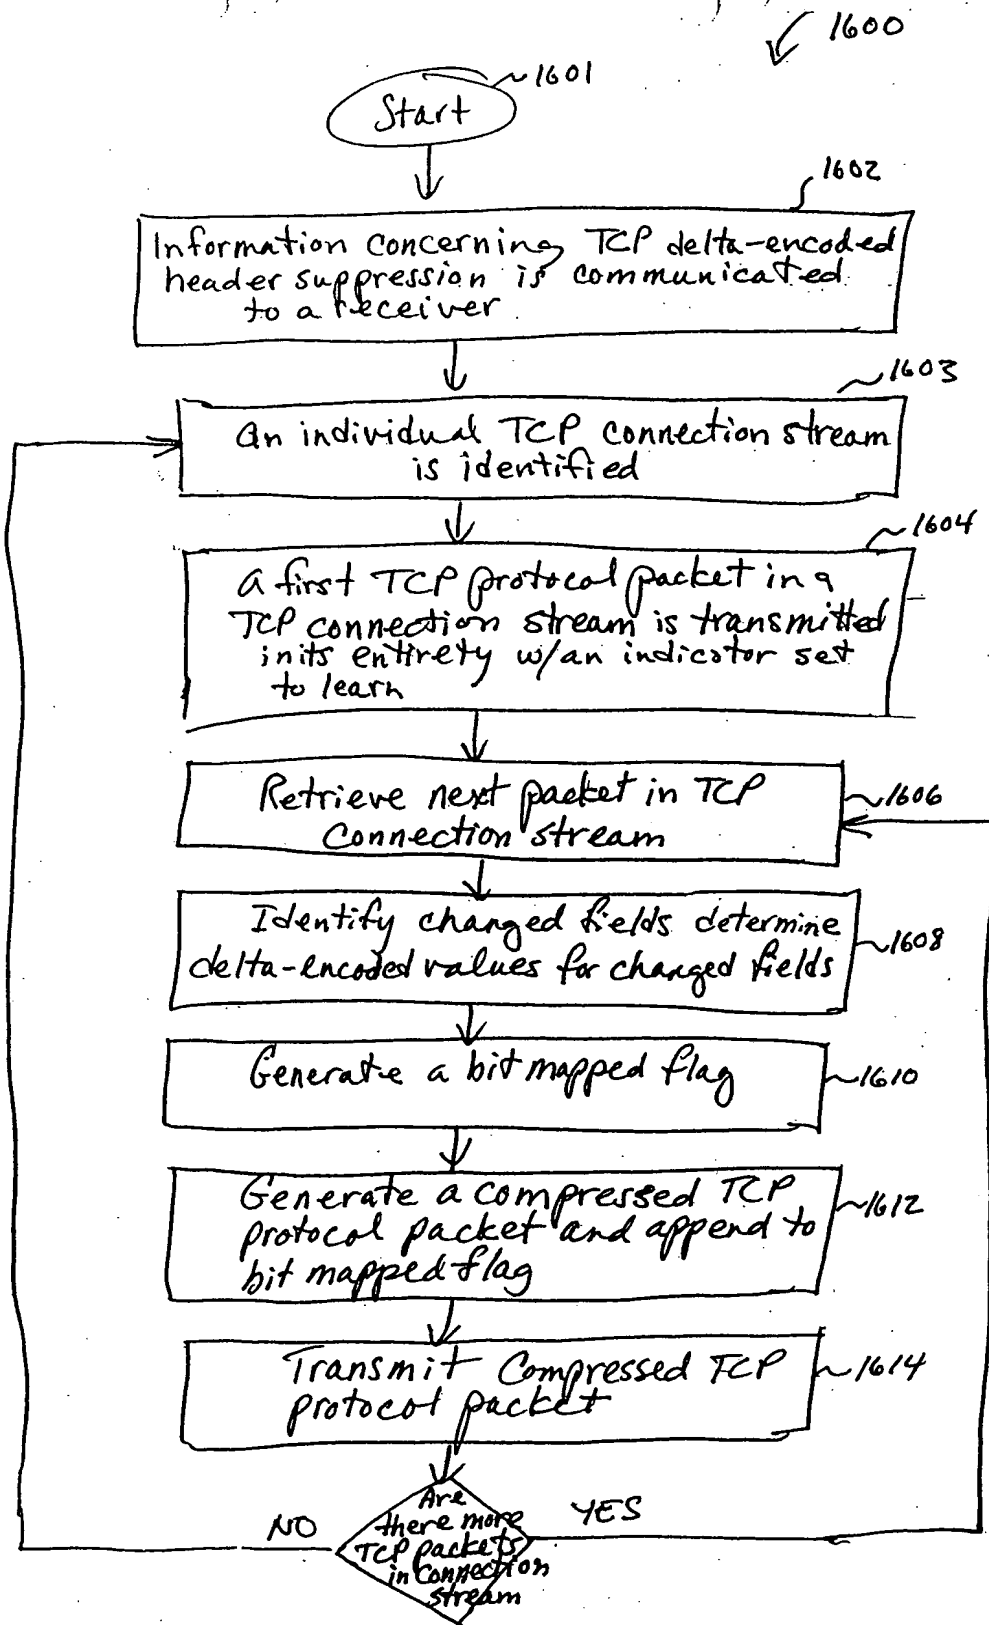 1600
Start
1601
1602
Information concerning TCP delta-encoded
header suppression is communicated
to a receiver
1603
An individual TCP connection stream
is identified
1604
A first TCP protocol packet in a
TCP connection stream is transmitted
in its entirety w/an indicator set
to learn
Retrieve next packet in TCP
Connection stream
1606
Identify changed fields determine
delta-encoded values for changed fields
1608
Generate a bit mapped flag
1610
Generate a compressed TCP
protocol packet and append to
bit mapped flag
1612
Transmit Compressed TCP
protocol packet
1614
Are
there more
TCP packets
in Connection
stream
NO
YES